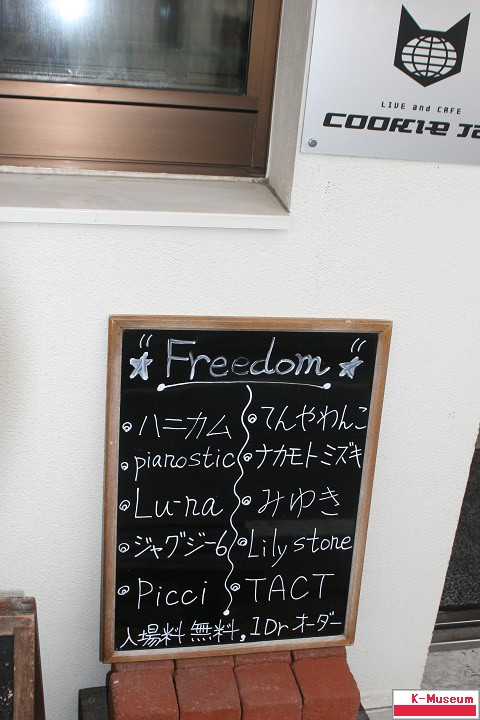 LIVE and CAFE
COOKIE JA
Freedom
ハニカム
pianostic
Lu-na
ジャグジー6
Picci
てんやわんこ
ナカモトミズキ
みゆき
Lily stone
TACT
入場料無料, 1Drオーダー
K-Museum